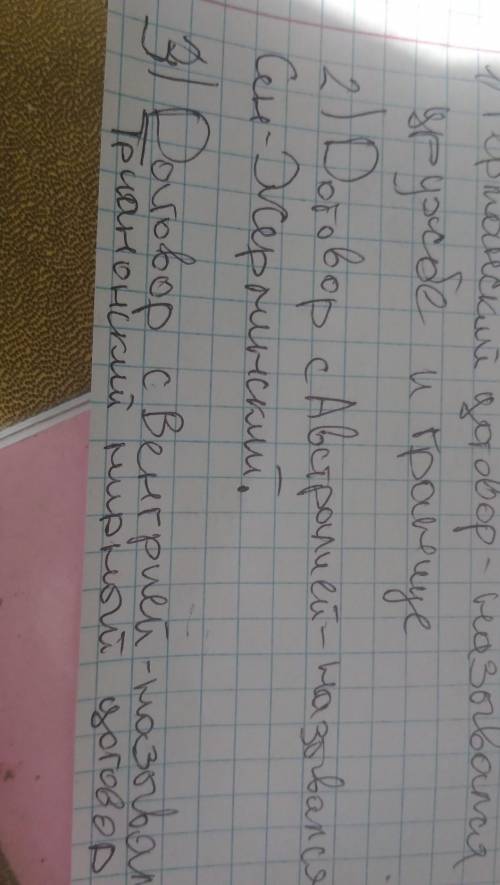 1) Германский договор - назывался
дружбе и границе
2) Договор с Австралией - назывался
Сен-Жерминский.
3) Договор с Венгрией - называл
Трианонский мирный договор